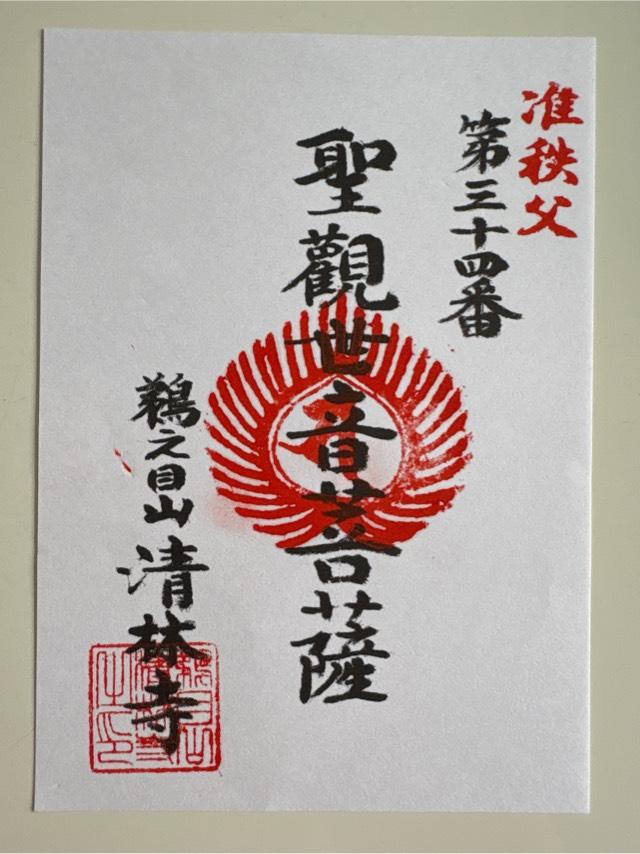 准秩父
第三十四番
聖觀世音菩薩
鵜之目山 清林寺